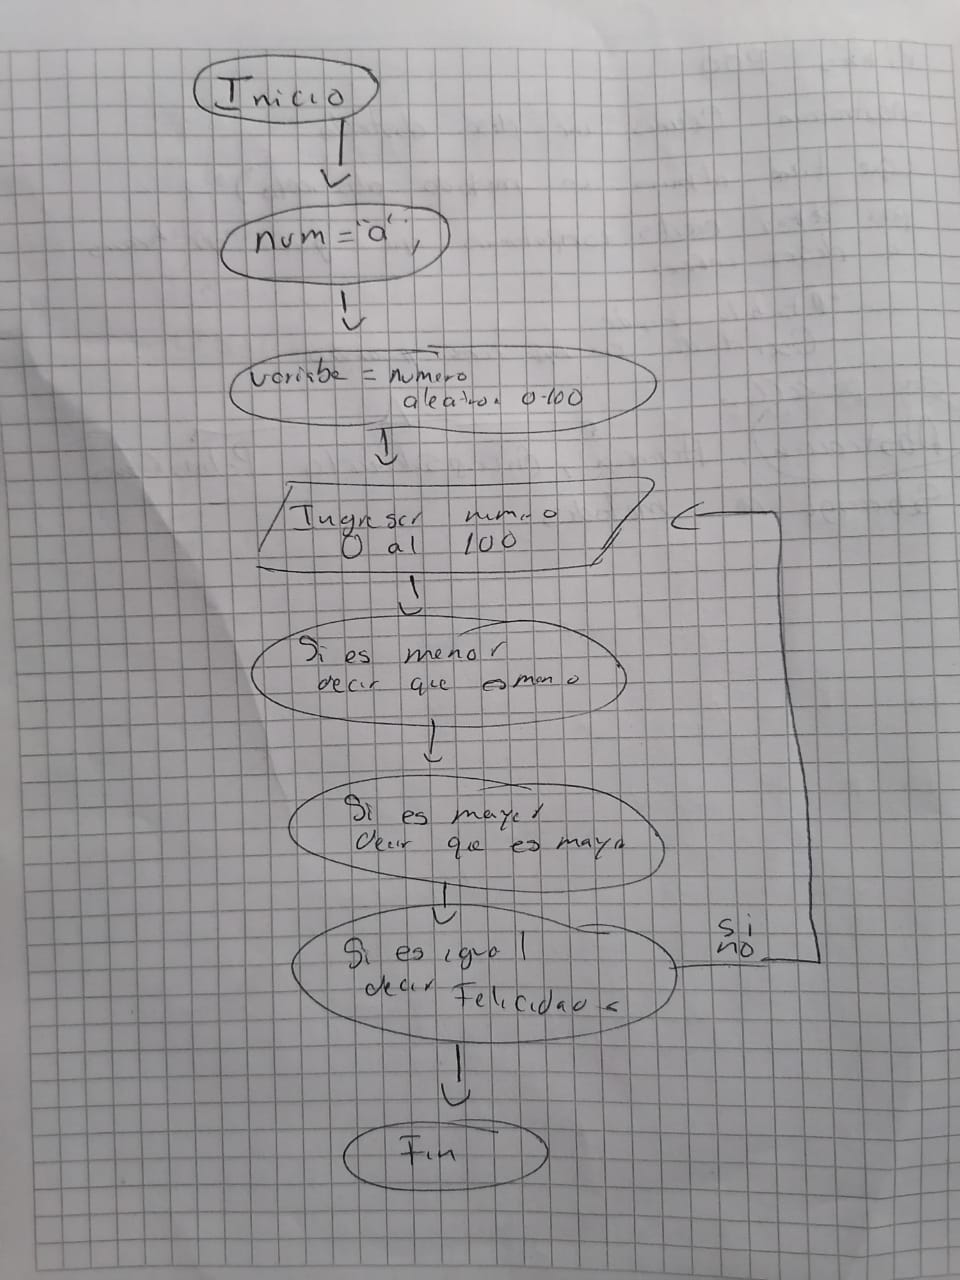 Inicio
num = "a",
varisbe = numero
aleatrio. 0-100
Ingresar numero
0 al 100
Si es menor
decir que es meno
Si es mayor
decir que es mayo
si
no
Si es igual
decir Felicidades
Fin